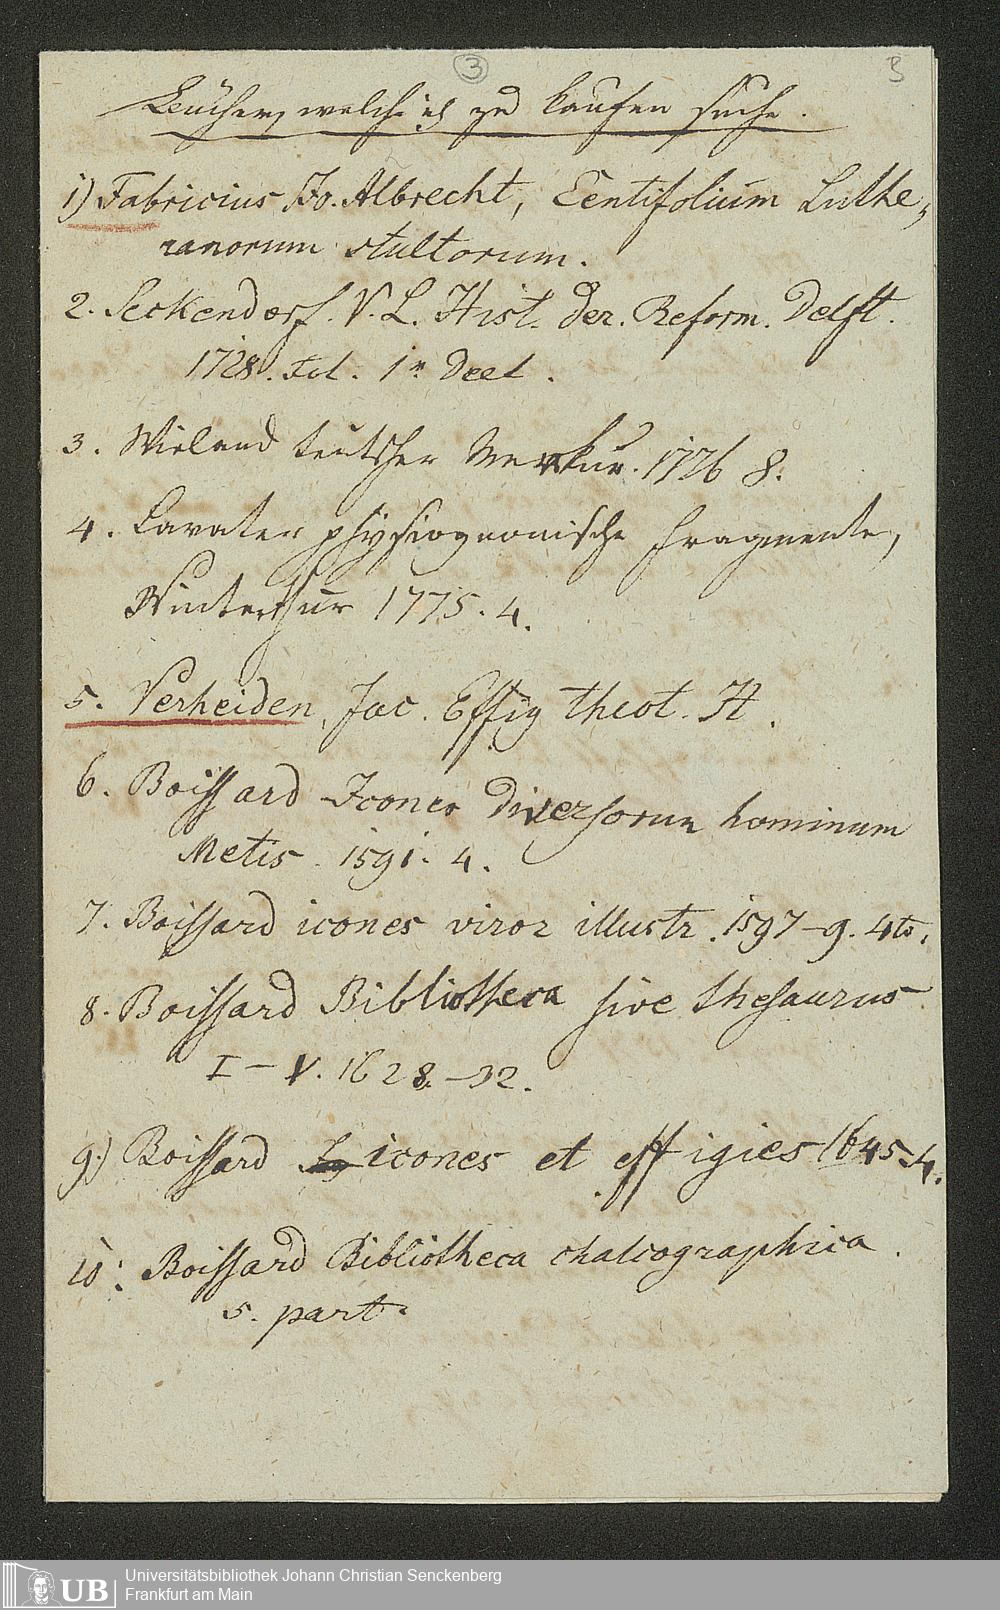 3
3
Bücher, welche ich zu kaufen suche.
1) Fabricius Jo. Albrecht, Centifolium Luthe,
ranorum stultorum.
2. Seckendorf. V. L. Hist. der. Reform. Delft.
1728. Fol. 1r. Deel.
3. Wieland teutscher Merkur. 1776 8.
4. Lavater physiognomische Fragmente,
Winterthur 1775. 4.
5. Verheiden, Jac. Effig theol. H.
6. Boissard Icones diversorum hominum
Metis. 1591. 4.
7. Boissard icones viror illustr. 1597-9. 4to.
8. Boissard Bibliotheca sive thesaurus
I - V. 1628-32.
9.) Boissard icones et effigies 1645. 4.
10: Boissard Bibliotheca chalcographica.
5. part.
UB
Universitätsbibliothek Johann Christian Senckenberg
Frankfurt am Main